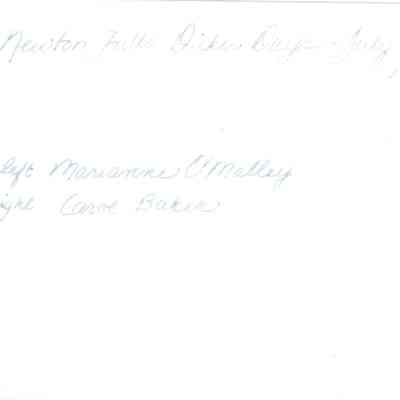 Newton Falls Dicken Days - July
left Marianne O'Malley
ight Carol Baker